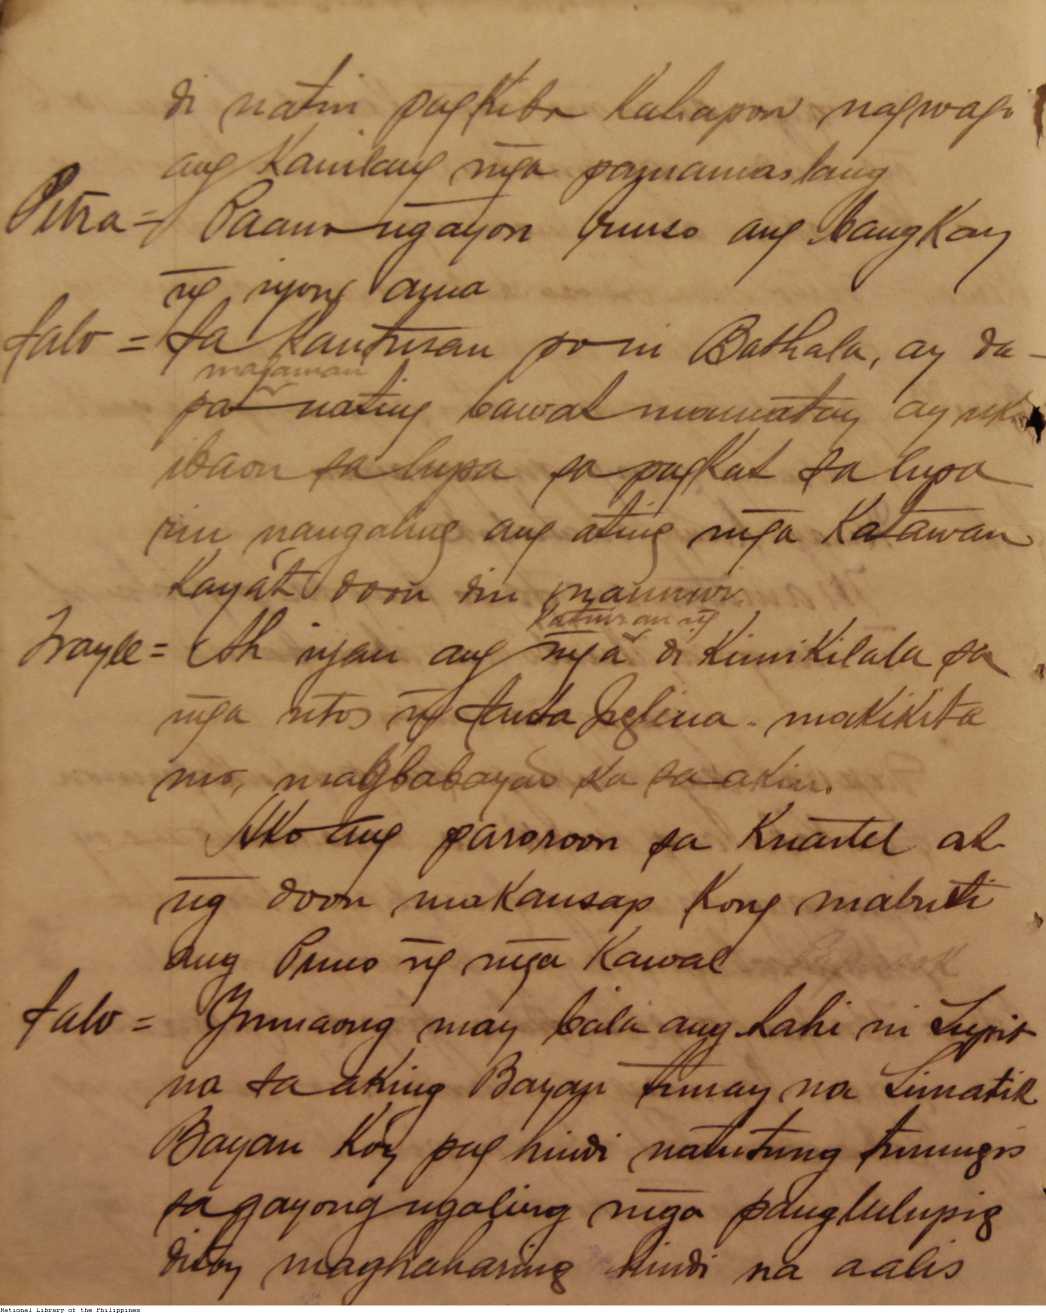 di natin pagkibo kahapon nagwagi
ang kanilang mga pagnanaslang
Petra = Paano ngayon Curso ang bangkay
ng inyong ama
Salo = Sa kautusan po ni Bathala, ay da-
mafaman
pat nating bawat mamatay ay
ibaon sa lupa sa pagkat sa lupa
rin nangaling ang ating mga Katawan
Kaya't doon din mauuwi.
katuiran ng
Frayle = Ah iyan ang mga di Kinikilala sa
mga utos ng Santa Iglecia. makikita
mo, magbabayad ka sa akin.
Ako ang paroroon sa Kuartel at
ng doon makausap Kong mabuti
ang Puno ng mga Kawal
Salo = Ynmaong may bala ang Lahi ni Lupit
na sa aking Bayan tunay na Limatik
Bayan Ko'y pag hindi natutung tumungis
sa gayong ngaling mga panglulupig
dito'y maghaharing hindi na aalis
National Library of the Philippines